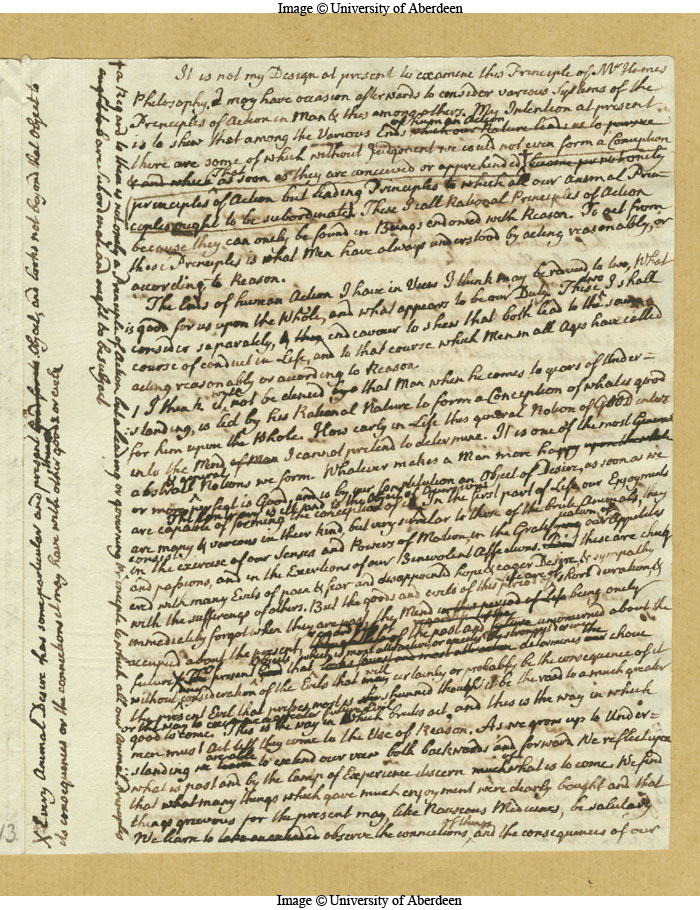 Image © University of Aberdeen
It is not my Design at present to examine this Principle of Mr Humes
Philosophy, I may have occasion afterwards to consider various Systems of the
Principles of Action in Man & this among others. My Intention at present
of human action
is to shew that among the Various Ends which our Nature leads us to pursue
there are some of which without Judgment we could not even form a Conception
& and which as soon as they are conceived or apprehended
That
principles of Action but leading Principles to which all our Animal Prin-
ciples ought to be subordinate. These I call Rational Principles of Action
because they can onely be found in Beings endowed with Reason. To act from
these Principles is what Men have always understood by acting reasonably, or
according to Reason.
The Ends of human Action I have in View I think may be reduced to two, What
is good for us upon the Whole, and what appears to be our Duty. These two I shall
consider separately, & endeavour to shew that both lead to the same
course of conduct in Life, and to that course which Men in all Ages have called
acting reasonably or according to Reason
1 I think it will not be denied that Man when he comes to years of Under=
standing, is led by his Rational Nature to form a Conception of what is good
for him upon the Whole. How early in Life this general Notion of GOOD enters
into the Mind of Man I cannot pretend to determine. It is one of the most General
& abstract Notions we form. Whatever makes a Man more happy
or more perfect is Good, and is by our Constitution an Object of Desire, as soon as we
are capable of forming the conception of it. In the first part of Life our Enjoyments
The contrary is ill and is the Object of Aversion
are many & various in their kind, but very similar to those of the brute Animals, they
consist
in the exercise of our Senses and Powers of Motion, in the Gratification of our Appetites
and passions, and in the Exertions of our Benevolent Affections. these are chequ
ered with many Evils of pain & fear and disappointed hope & eager Desire & sympathy
with the sufferings of others. But the goods and evils of this period of life are of short duration, &
immediately forgot when they are past, the Mind being onely
occupied about the present, regardless of the past and unconcerned about the
future
without consideration of the Evils that will certainly or probably be the consequence of it
the present Evil that presses most is shunned though it be the road to a much greater
or the way to escape a greater future evil
good to come. This is the way in which brutes act, and this is the way in which
men must act till they come to the Use of Reason. As we grow up to Under=
are able
standing we to extend our view both backwards and forward. We reflect upon
what is past and by the lamp of Experience discern of what is to come. We find
that what many things which gave much enjoyment were dearly bought and that
things grievous for the present may, like Nauseous Medicines, be salutary
of things
We learn to observe the connections, and the consequences of our
† a Regard to them is not onely a Principle of Action but a leading or governing Principle to which all our animal Principles
ought to be subordinate and ought to be
X Every Animal Desire has some particular and present Object, and looks not beyond that Object to
its consequences or the connections it may have with other goods or evils
13
Image © University of Aberdeen